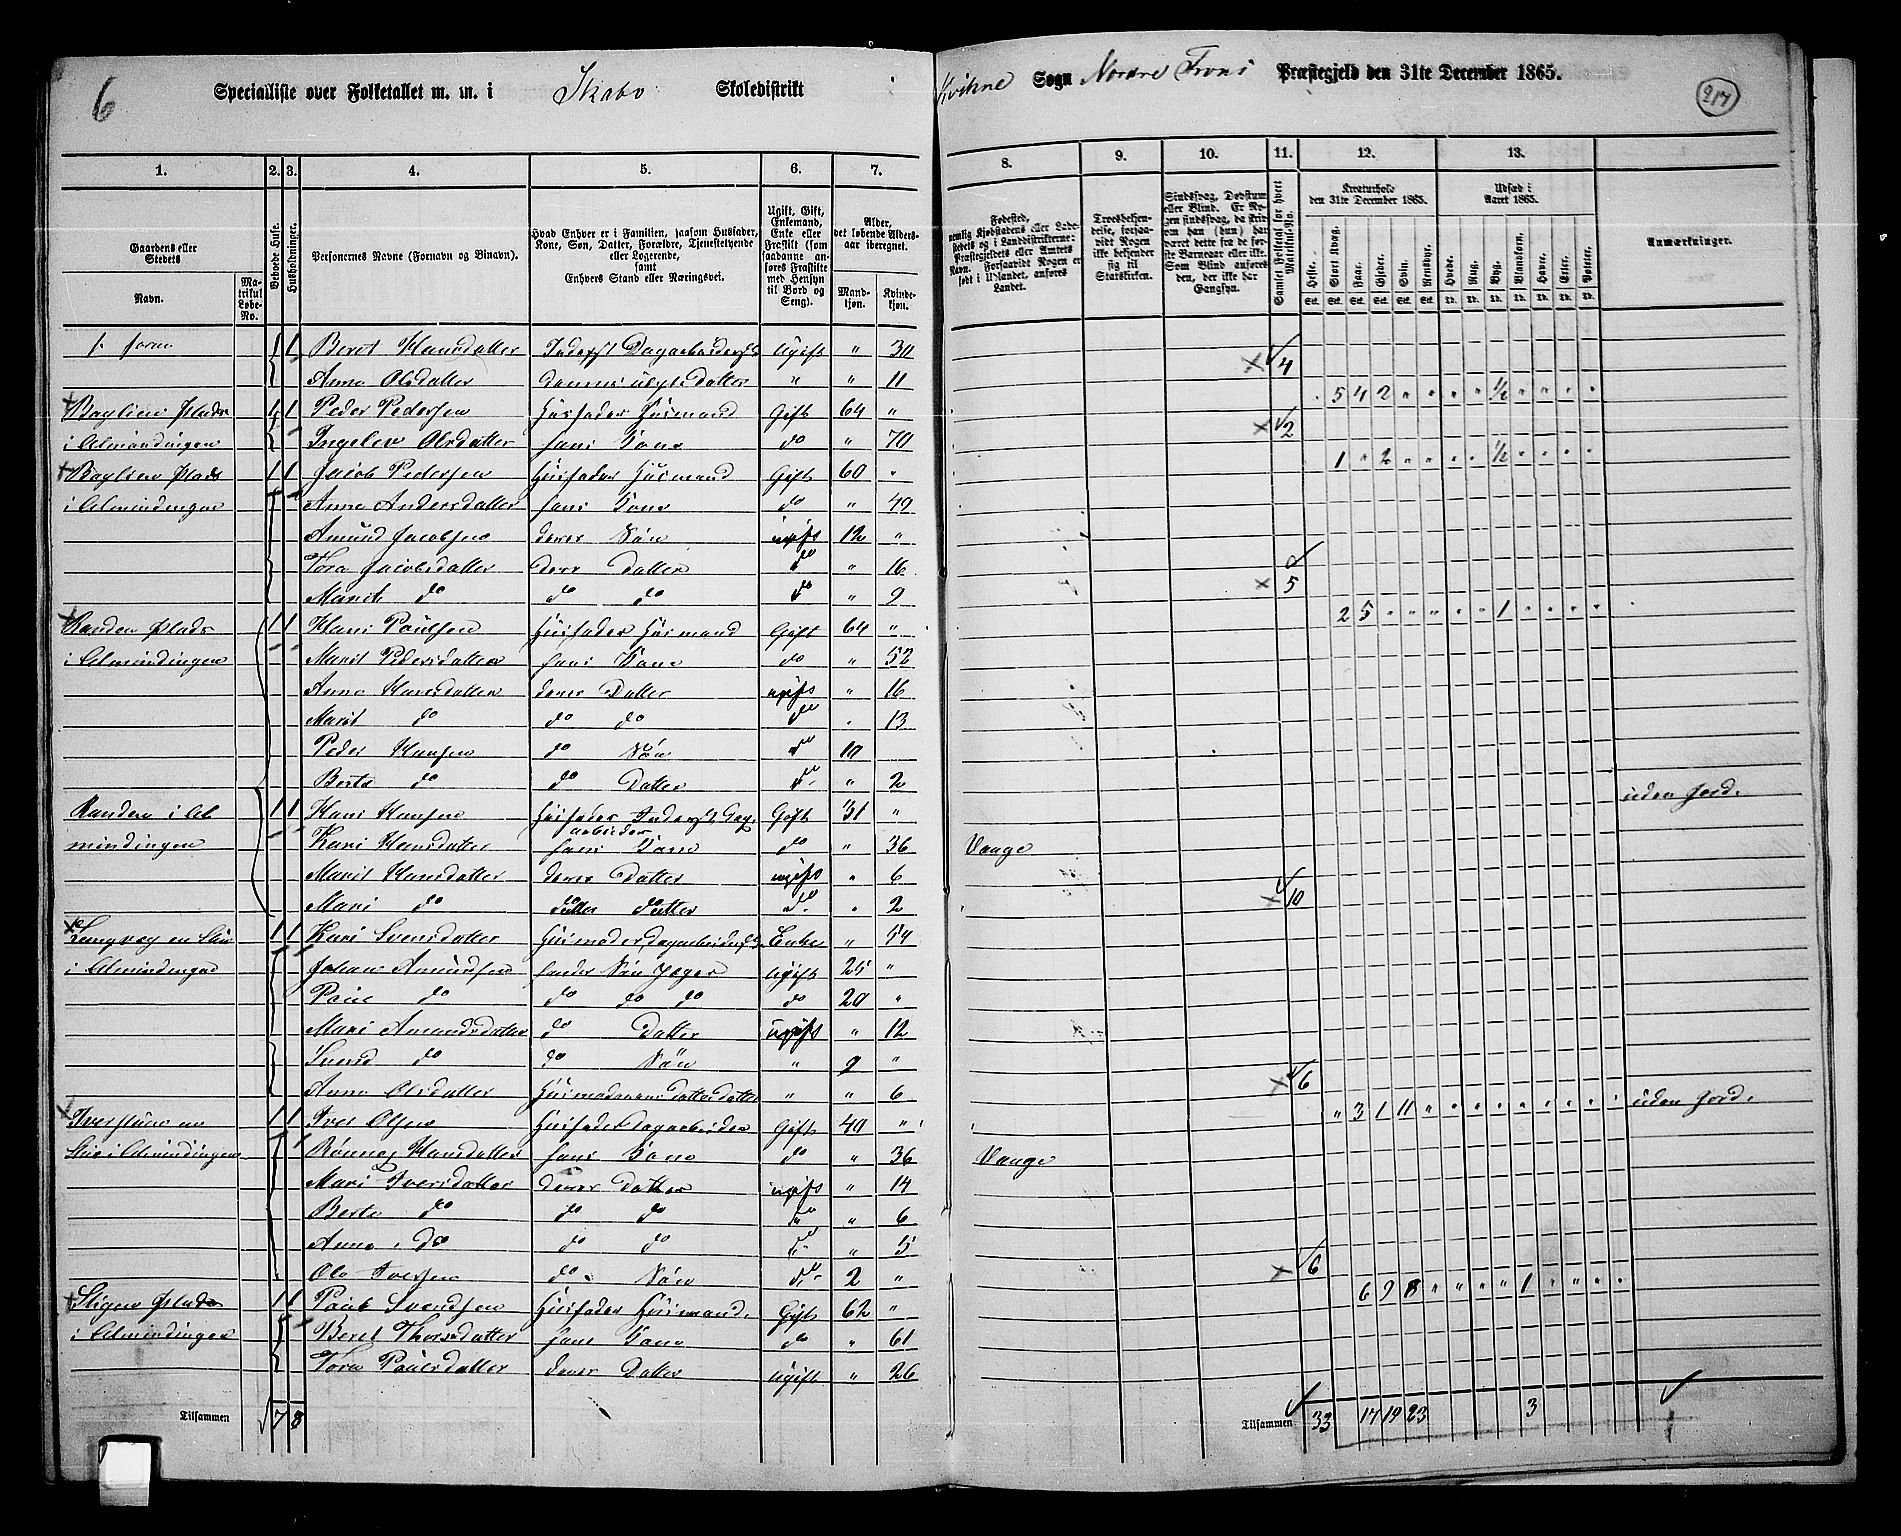 6 Specialliste over Folketallet m. m. i Skabo Skoledistrikt Kvikne Sogn Nordre Frons Præstegjeld den 31te December 1865. 217
1. 2. 3. 4. 5. 6. 7. 8. 9. 10. 11. 12. 13.
Gaardens eller Stedets
Navn.
Matrikul Løbe-No.
Beboede Huse.
Husholdninger.
Personernes Navne (Fornavn og Binavn).
Hvad Enhver er i Familien, saasom Husfader, Kone, Søn, Datter, Forældre, Tjenestetyende eller Logerende, samt Enhvers Stand eller Næringsvei.
Ugift, Gift, Enkemand, Enke eller Fraskilt (som saadanne anføres Fraskilte med Hensyn til Bord og Seng).
Alder, det løbende Aldersaar iberegnet.
Mandkjøn. Kvindekjøn.
Fødested, nemlig Kjøbstadens eller Ladestedets og i Landdistrikterne: Præstegjeldets eller Amtets Navn. Forsaavidt Nogen er født i Udlandet, anføres Landet.
Troesbekjendelse, forsaavidt Nogen ikke bekjender sig til Statskirken.
Sindssvag, Døvstum eller Blind. Er Nogen sindssvag, da skrives
Samlet Folketal for hvert Matrikul-No.
Kreaturhold den 31te December 1865.
Heste. Stort Kvæg. Faar. Gjeder. Sviin. Rensdyr.
Udsæd i Aaret 1865.
Hvede. Rug. Byg. Blandkorn. Havre. Erter. Poteter.
Anmærkninger.
f. foran 1 1 Beret Hansdatter Inderst Dagarbeiderske Ugift " 30
Anne Olsdatter Datter " " 11 4
Baglien Plads 1 1 Peder Pedersen Husfader Husmand Gift 64 " . 5 4 2 " " " " ½ " " " "
i Almindingen Ingelev Olsdatter hans Kone do " 70 2
Baglien Plads 1 1 Jacob Pedersen Husfader Husmand Gift 60 " 1 " 2 " " " " ½ " " " "
i Almindingen Anne Andersdatter hans Kone do " 49
Amund Jacobsen deres Søn ugift 12 "
Tora Jacobsdatter deres Datter do " 16
Marit do do do do " 9 5
Randen Plads 1 1 Hans Paulsen Husfader Husmand Gift 64 " 2 5 " " " " " 1 " " " "
i Almindingen Marit Pedersdatter hans Kone do " 52
Anne Hansdatter deres Datter ugift " 16
Marit do do do do " 13
Peder Hansen do Søn do 10
Berte do do Datter do " 2
Randen i Al 1 1 Hans Hansen Husfader Inderst Dag Gift 31 " uden Jord.
arbeider
mindingen Kari Hansdatter hans Kone do " 36 Vaage
Marit Hansdatter deres Datter ugift " 6
Mari do Datter do " 2 10
Langvag en Stue 1 1 Kari Svensdatter Husmoder, Dagarbeiderske Enke " 54
i Almindingen Johan Amundsen hendes Søn Jæger Ugift 25 "
do do do do do 20 "
Mari Amundsdatter do Datter ugift " 12
Svend do do Søn " 9 "
Anne Olsdatter Husmoderens Datterdatter " " 6 6
Iverstuen en 1 1 Iver Olsen Husfader Dagarbeider Gift 40 " " 3 1 11 " " " " " " " " uden Jord.
Stue i Almindingen Rønnog Hansdatter hans Kone do " 36 Vaage
Mari Iversdatter deres Datter ugift " 14
Berte do do do do " 6
Anne do do do do " 5
Ole Iversen do Søn do 2 " 6
Stigen Plads 1 1 Poul Svendsen Husfader Husmand Gift 62 " 6 7 8 " " " " 1 " " " "
i Almindingen Beret Thorsdatter hans Kone do " 61
Tora Poulsdatter deres Datter ugift " 26
Tilsammen 7 8 Tilsammen 33 17 19 23 3